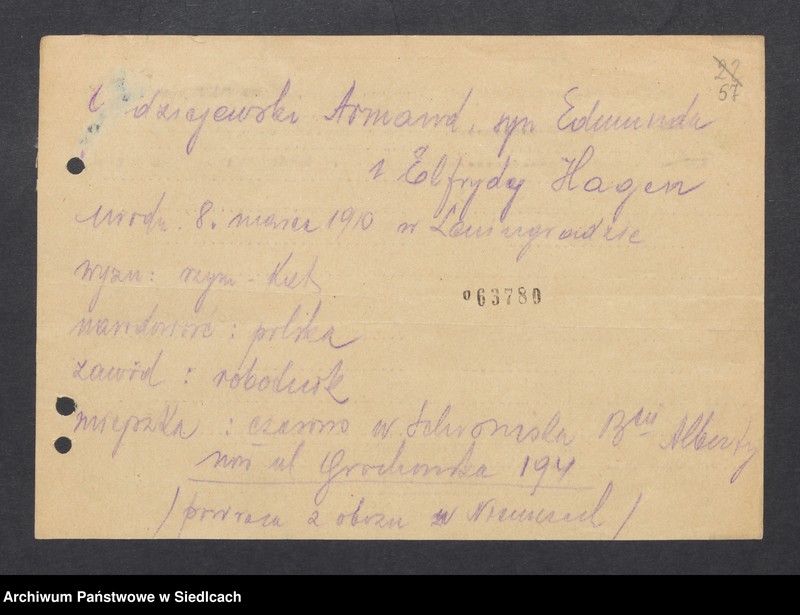 22
57
dziejewski Armand, syn Edmunda
i Elfrydy Hagen
urodz. 8. marca 1910 w Leningradzie
wyzn: rzym - kat
narodowość : polska
zawód : robotnik
mieszka : czasowo w Schronisku Braci Alberty
ul Grochowska 194
/ powraca z obozu w Niemczech /
063780
Archiwum Państwowe w Siedlcach